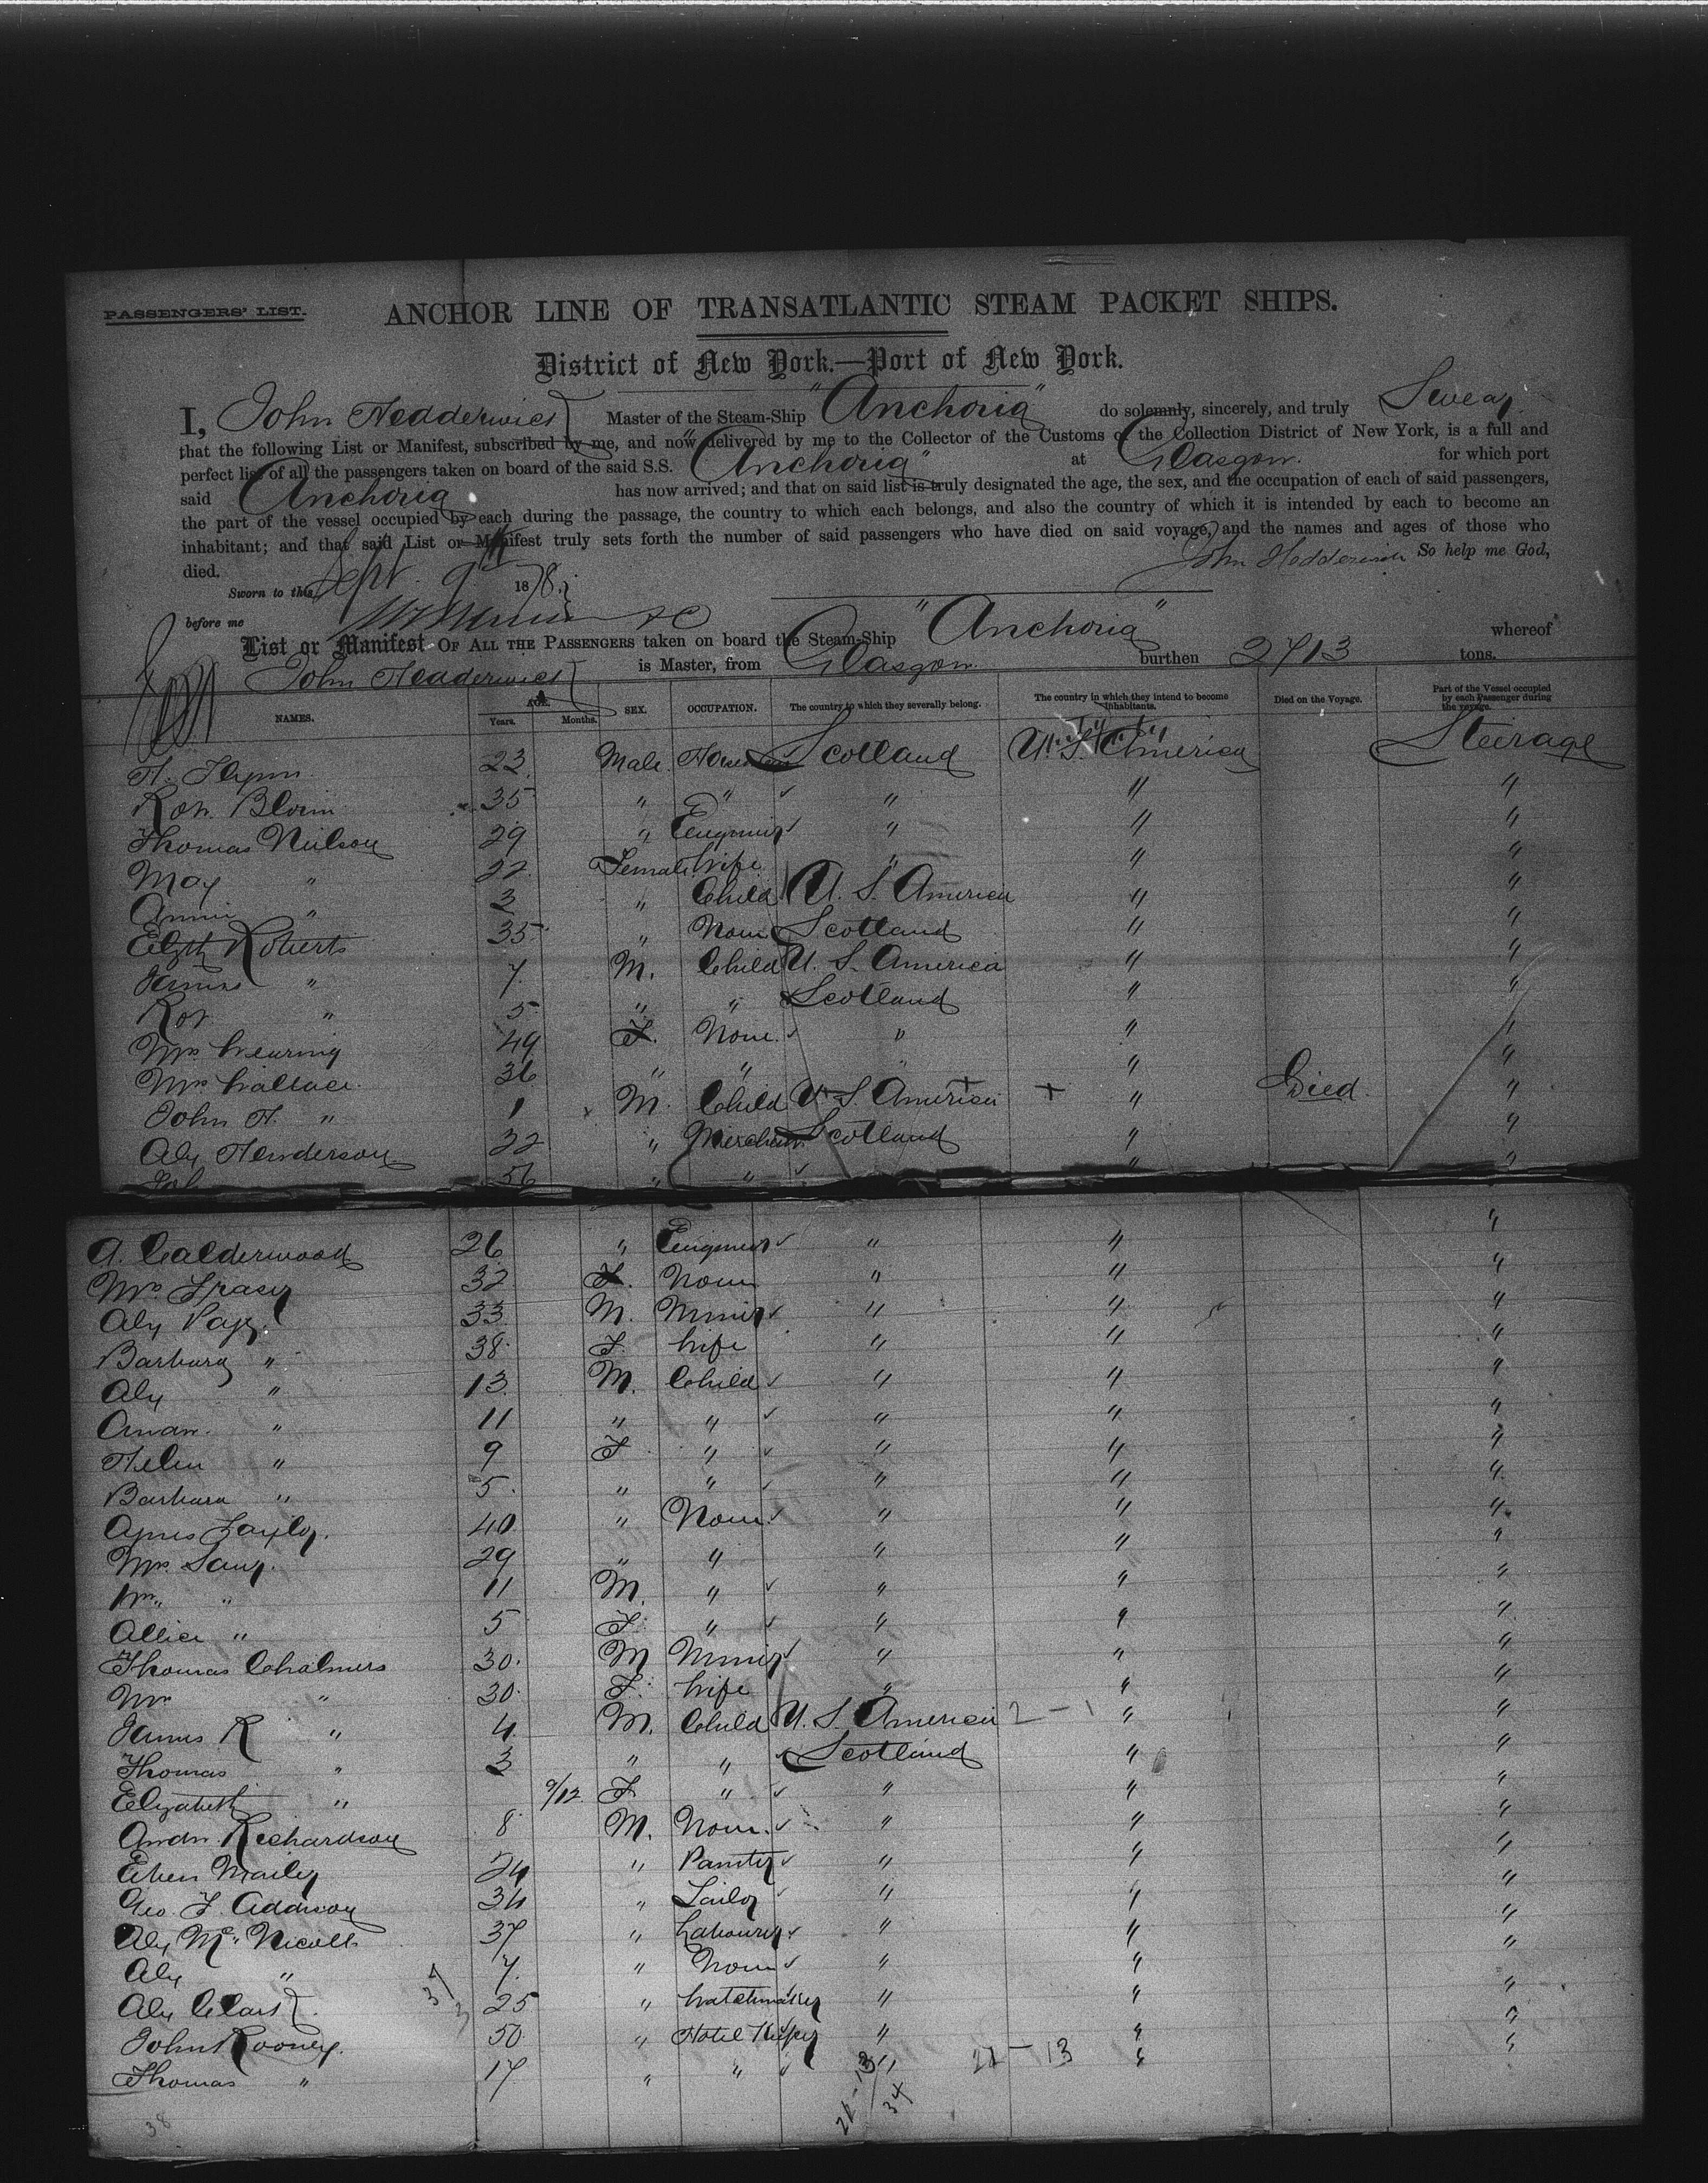 PASSENGERS' LIST.
ANCHOR LINE OF TRANSATLANTIC STEAM PACKET SHIPS.
District of New York.—Port of New York.
I, John Hedderwick Master of the Steam-Ship "Anchoria" do solemnly, sincerely, and truly Swear
that the following List or Manifest, subscribed by me, and now delivered by me to the Collector of the Customs of the Collection District of New York, is a full and
perfect list of all the passengers taken on board of the said S.S. "Anchoria" at Glasgow. for which port
said Anchoria has now arrived; and that on said list is truly designated the age, the sex, and the occupation of each of said passengers,
the part of the vessel occupied by each during the passage, the country to which each belongs, and also the country of which it is intended by each to become an
inhabitant; and that said List or Manifest truly sets forth the number of said passengers who have died on said voyage, and the names and ages of those who
died. John Hedderwick So help me God,
Sworn to this Sept. 9th 1878.
before me
List or Manifest OF ALL THE PASSENGERS taken on board the Steam-Ship "Anchoria" whereof
John Hedderwick is Master, from Glasgow burthen 2713 tons.
NAMES. AGE. Years. Months. SEX. OCCUPATION. The country to which they severally belong. The country in which they intend to become inhabitants. Died on the Voyage. Part of the Vessel occupied by each Passenger during the voyage.
H. Flynn 23 Male Scotland U. S. America Steerage
Robt. 35 " " " " "
Thomas Neilson 29 " Engineer " " "
May " 22 Female Wife " " "
Annie " 3 " Child U. S. America " "
Elizth Roberts 35 " None Scotland " "
James " 7 M. Child U. S. America " "
Robt " 5 " " Scotland " "
Mrs Wearing 49 F. None " " "
Mrs Wallace 36 " " " " "
John H. " 1 M. Child U. S. America + " Died "
Alex Henderson 22 " Merchant Scotland " "
56 " " " "
A. Calderwood 26 " Engineer " " "
Mrs Fraser 32 F. None " " "
Alex Page 33 M. Miner " " "
Barbara " 38 F. Wife " " "
Alex " 13 M. Child " " "
Andw. " 11 " " " " "
Helen " 9 F " " " "
Barbara " 5 " " " " "
Agnes Taylor. 40 " None " " "
Mrs Lang. 29 " " " " "
Wm. " 11 M. " " " "
Allice " 5 F. " " " "
Thomas Chalmers 30 M Miner " " "
Mrs " 30 F. Wife " " "
James R " 4 M. Child U. S. America 2 - 1 " "
Thomas " 3 " " Scotland " "
Elizabeth " 9/12 F " " " "
Andw. Richardson 8 M. None " " "
Eben 24 " Painter " " "
Geo. F. Addison 34 " Tailor " " "
Alex McNicoll 37 " Labourer " " "
Alex " 7 " None " " "
Alex Clark 25 " Watchmaker " " "
John Rooney. 50 " Hotel Keeper " " "
Thomas " 17 " " " 21 - 13 " "
38 21-13/34